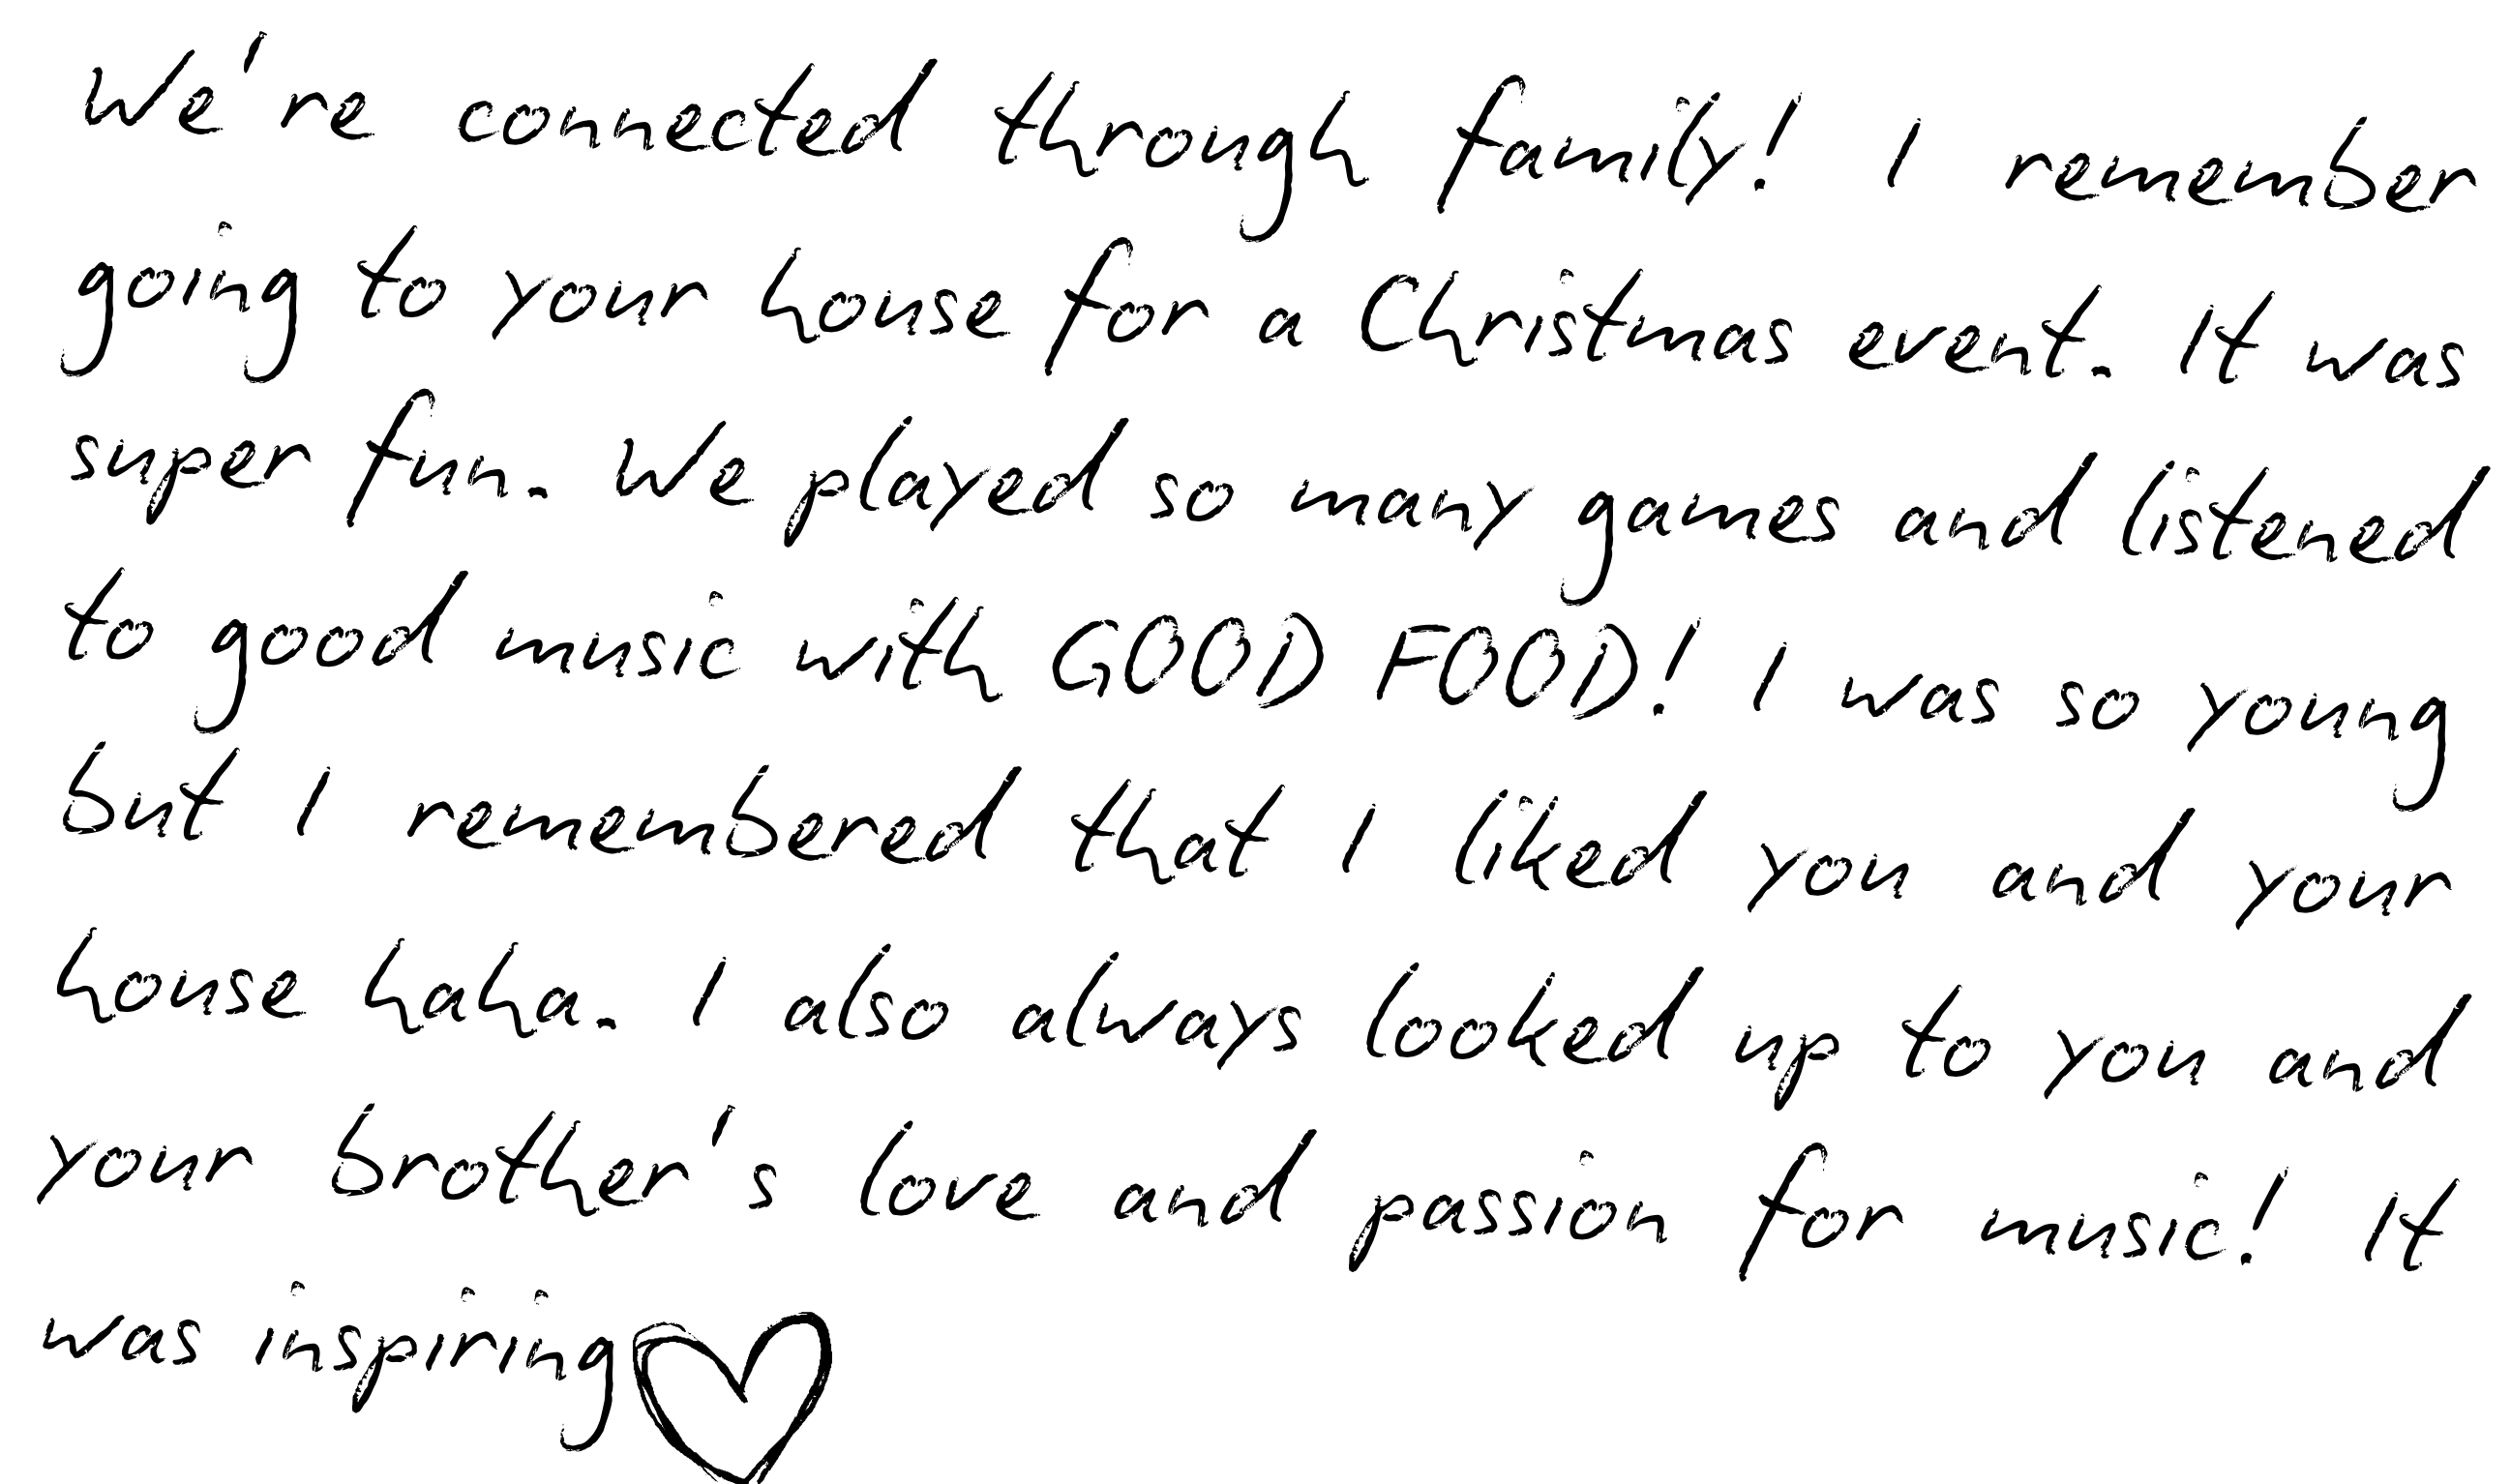 We're connected through family! I remember
going to your house for a Christmas event. It was
super fun. We played so many games and listened
to good music with GOOD FOOD! I was so young
but I remembered that I liked you and your
house haha. I also always looked up to you and
your brother's love and passion for music! It
was inspiring